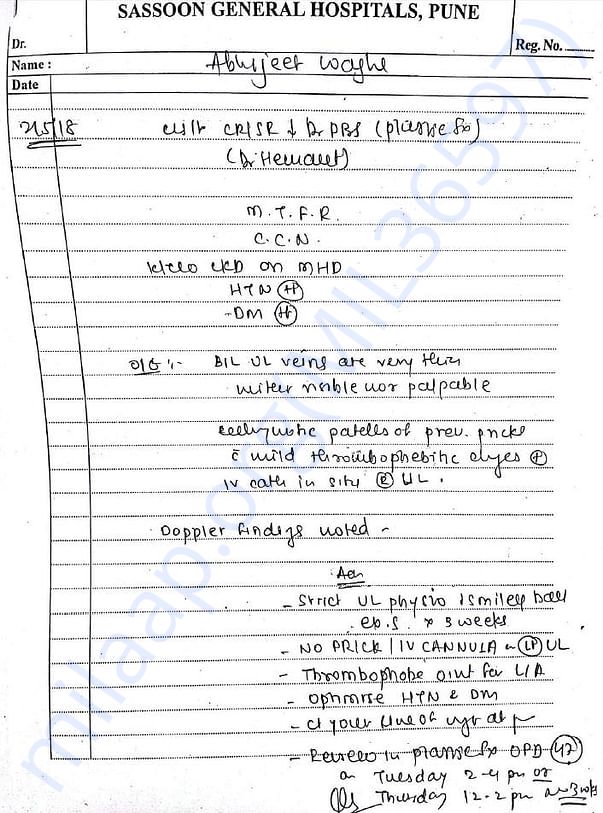 SASSOON GENERAL HOSPITALS, PUNE
Dr.
Reg. No.
Name : Abhijeet Waghe
Date
21/5/18
CRISR Dr PRS (plastic Sx)
(Dr Hemant)
M.T.F.R.
C.C.N.
CKD on MHD
HTN (+)
-DM (+)
O/E :- B/L UL veins are very thin
neither visible nor palpable
ecchymotic patches of prev. pricks
c mild thrombophebitic chges (P)
IV cath in situ (R) UL.
Doppler findings noted -
Adv
- Strict UL physio smiley ball
x 3 weeks
- NO PRICK / IV CANNULA in UL
- Thrombophobe oint for L/A
- Optimise HTN & DM
- Ct your line of
- Review in plastic Sx OPD (47)
on Tuesday 2-4 pm or
Thursday 12-2 pm 3 wks
milaap.org(MIL36597)